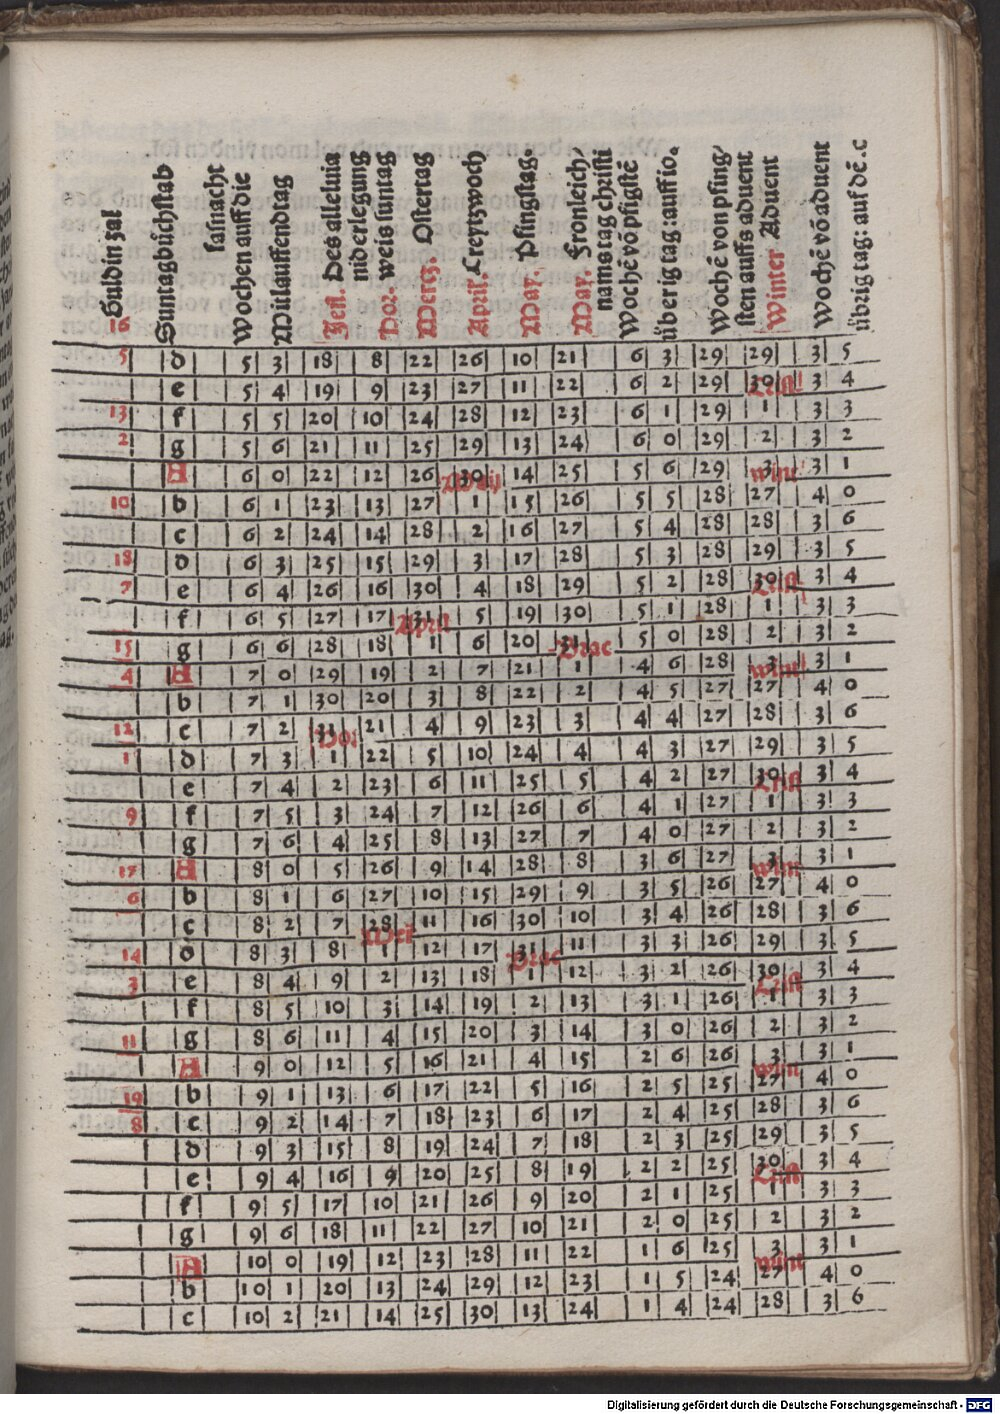 16 Guldin zal
Suntagbůchstab
Wochen auff die
fasnacht
Vnlauffendtag
Jen. Des alleluia
niderlegung
Hor. weis suntag
Mercz Ostertag
April. Creyzwoch
May. Pfingstag.
May. Fronleich
nams tag christi
Wochē vō pfigstē
überig tag: auff io.
Wochē von pfing/
sten auffs aduent
Winter Aduent
Wochē vō aduent
übrig tag: auf dē .c
5 d 5 3 18 8 22 26 10 21 6 3 29 29 3 5
e 5 4 19 9 23 27 11 22 6 2 29 30 3 4
Crist
13 f 5 5 20 10 24 28 12 23 6 1 29 1 3 3
2 g 5 6 21 11 25 29 13 24 6 0 29 2 3 2
A 6 0 22 12 26 30 14 25 5 6 29 3 3 1
May wint
10 b 6 1 23 13 27 1 15 26 5 5 28 27 4 0
c 6 2 24 14 28 2 16 27 5 4 28 28 3 6
18 d 6 3 25 15 29 3 17 28 5 3 28 29 3 5
7 e 6 4 26 16 30 4 18 29 5 2 28 30 3 4
Crist
f 6 5 27 17 31 5 19 30 5 1 28 1 3 3
April
15 g 6 6 28 18 1 6 20 31 5 0 28 2 3 2
Brac
4 A 7 0 29 19 2 7 21 1 4 6 28 3 3 1
wint
b 7 1 30 20 3 8 22 2 4 5 27 27 4 0
12 c 7 2 31 21 4 9 23 3 4 4 27 28 3 6
Hor
1 d 7 3 1 22 5 10 24 4 4 3 27 29 3 5
e 7 4 2 23 6 11 25 5 4 2 27 30 3 4
Crist
9 f 7 5 3 24 7 12 26 6 4 1 27 1 3 3
g 7 6 4 25 8 13 27 7 4 0 27 2 3 2
17 A 8 0 5 26 9 14 28 8 3 6 27 3 3 1
wint
6 b 8 1 6 27 10 15 29 9 3 5 26 27 4 0
c 8 2 7 28 11 16 30 10 3 4 26 28 3 6
Mer
14 d 8 3 8 1 12 17 31 11 3 3 26 29 3 5
Brac
3 e 8 4 9 2 13 18 1 12 3 2 26 30 3 4
Crist
f 8 5 10 3 14 19 2 13 3 1 26 1 3 3
11 g 8 6 11 4 15 20 3 14 3 0 26 2 3 2
A 9 0 12 5 16 21 4 15 2 6 26 3 3 1
win
19 b 9 1 13 6 17 22 5 16 2 5 25 27 4 0
8 c 9 2 14 7 18 23 6 17 2 4 25 28 3 6
d 9 3 15 8 19 24 7 18 2 3 25 29 3 5
e 9 4 16 9 20 25 8 19 2 2 25 30 3 4
Crist
f 9 5 17 10 21 26 9 20 2 1 25 1 3 3
g 9 6 18 11 22 27 10 21 2 0 25 2 3 2
A 10 0 19 12 23 28 11 22 1 6 25 3 3 1
wint
b 10 1 20 13 24 29 12 23 1 5 24 27 4 0
c 10 2 21 14 25 30 13 24 1 4 24 28 3 6
Digitalisierung gefördert durch die Deutsche Forschungsgemeinschaft - DFG